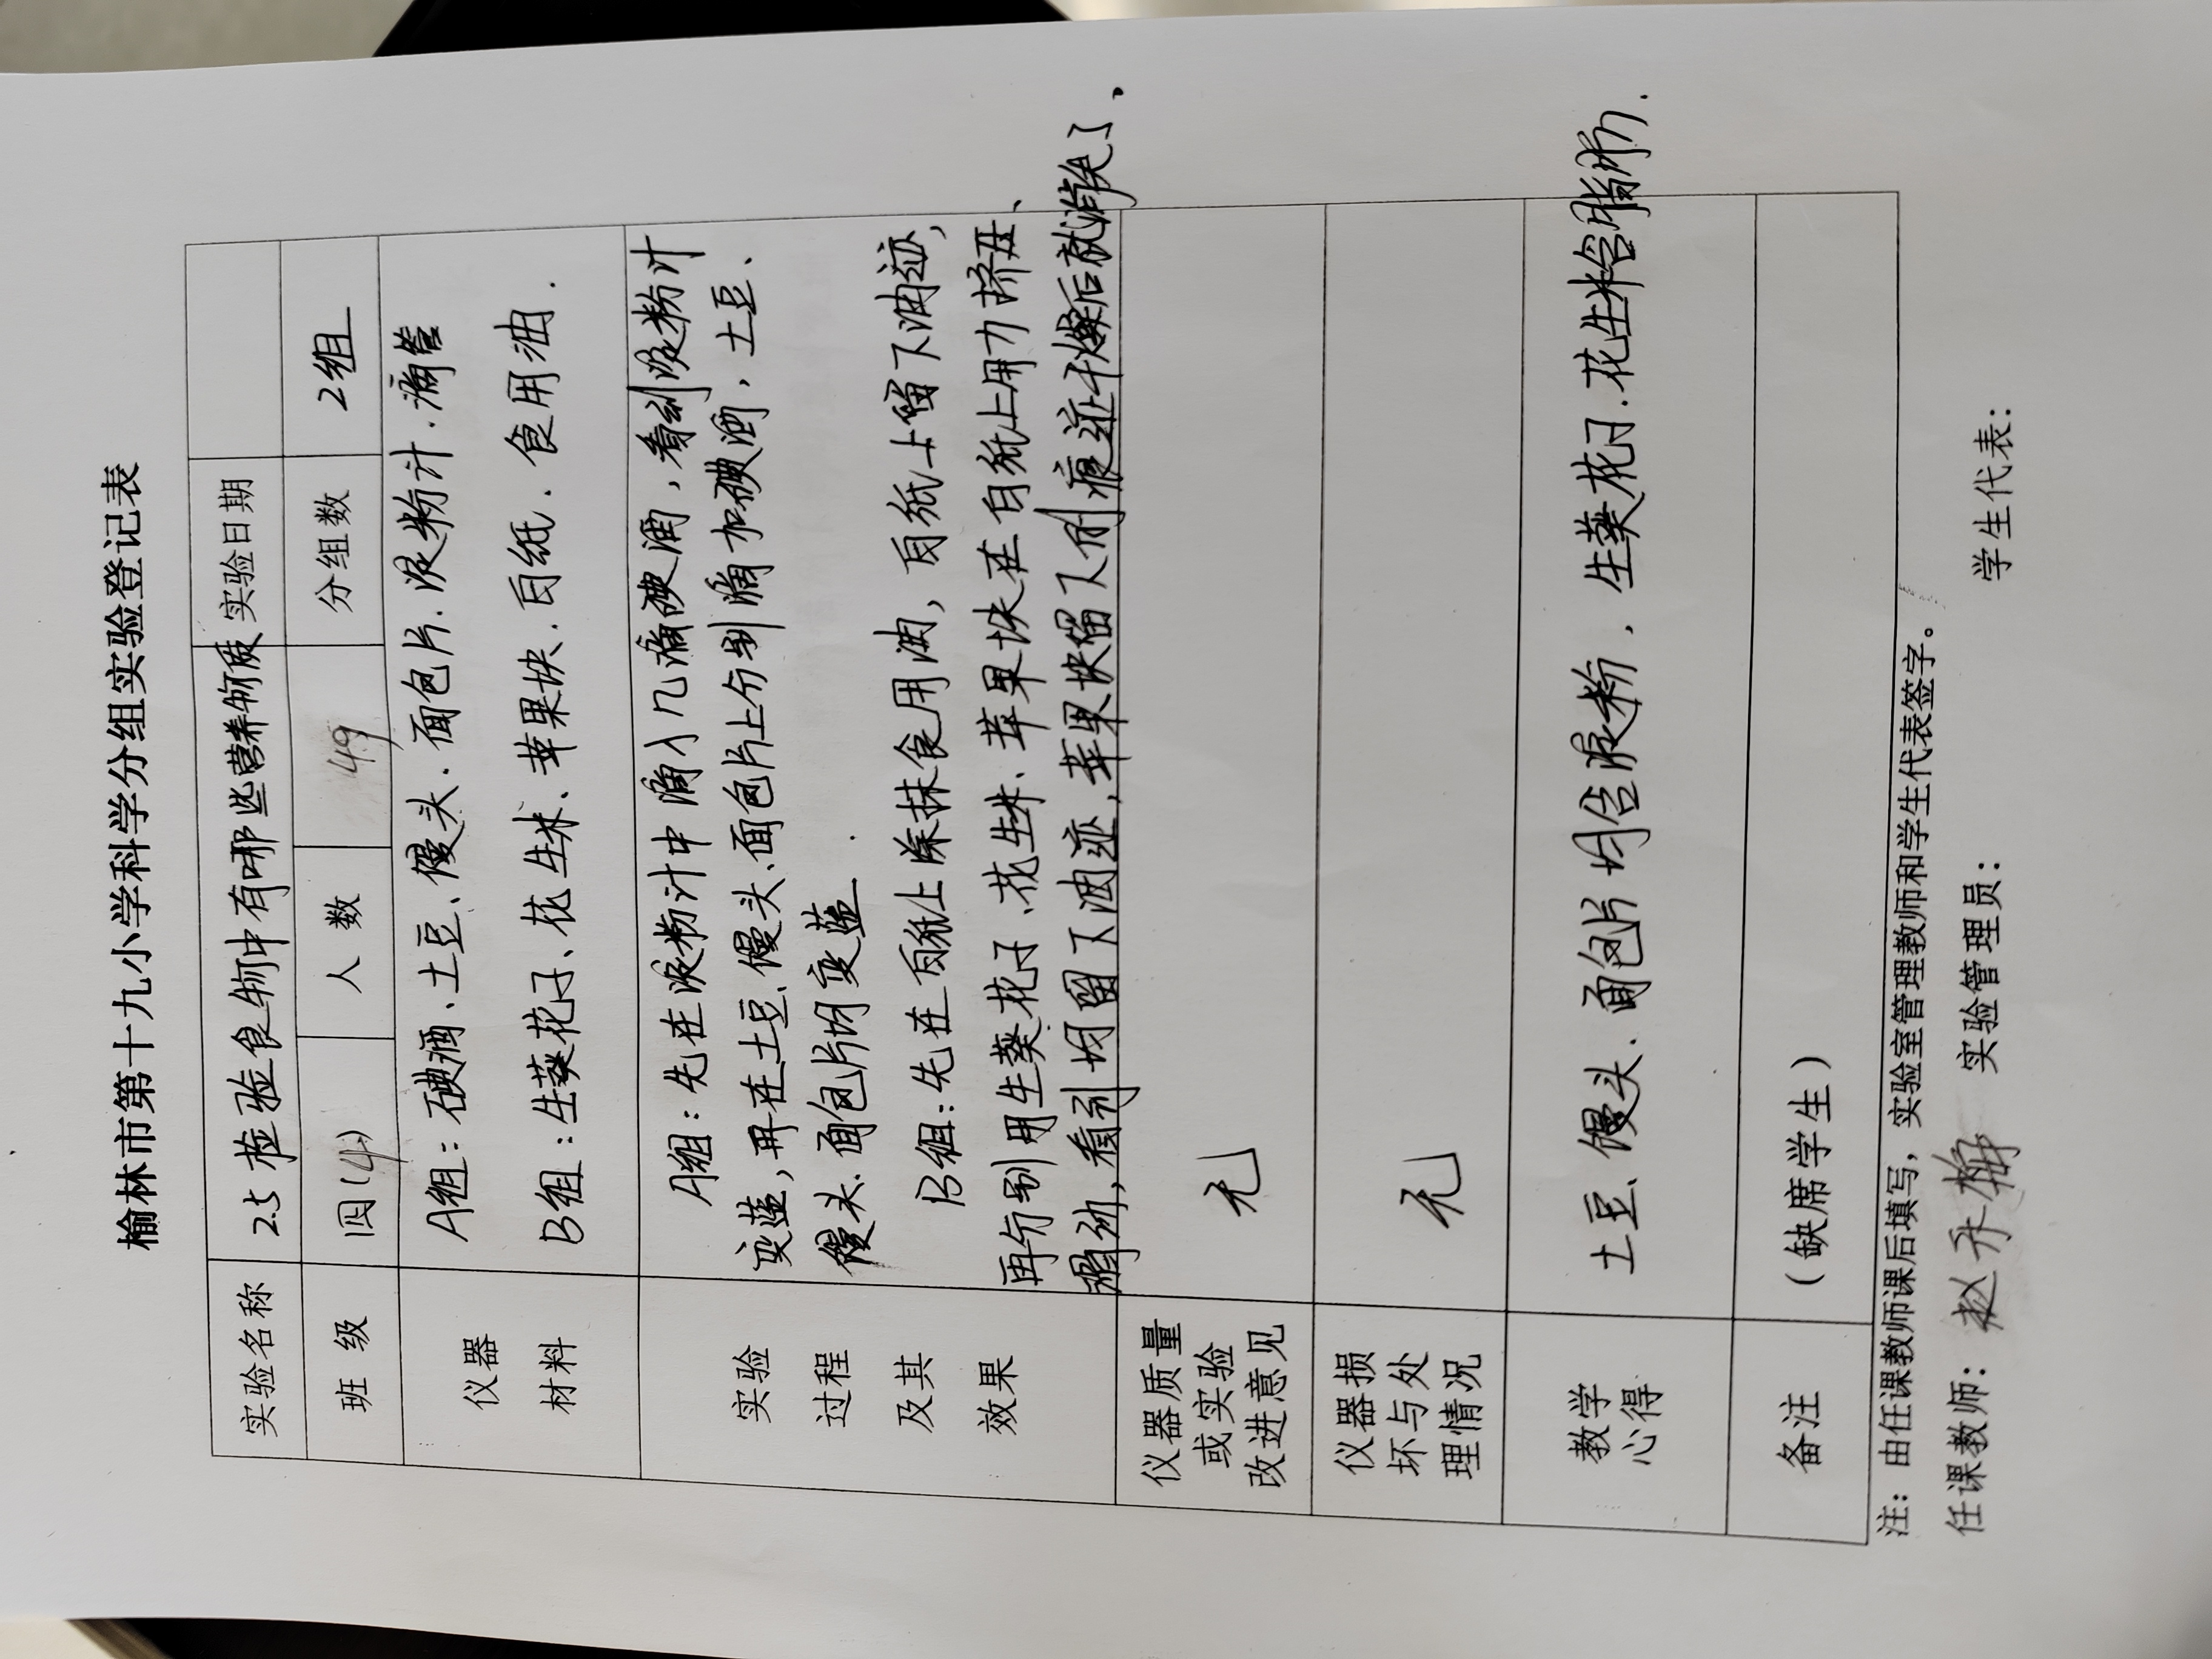 榆林市第十九小学科学分组实验登记表
实验名称 2.5 检验食物中有哪些营养物质 实验日期
班 级 四(4) 人 数 49 分组数 2组
仪器 材料
A组：碘酒、土豆、馒头、面包片、淀粉汁、滴管
B组：生葵花子、花生米、苹果块、白纸、食用油.
实验 过程 及其 效果
A组：先在淀粉汁中滴入几滴碘酒，看到淀粉汁
变蓝，再在土豆、馒头、面包片上分别滴加碘酒，土豆、
馒头、面包片均变蓝.
B组：先在白纸上涂抹食用油，白纸上留下油迹，
再分别用生葵花子、花生米、苹果块在白纸上用力挤压、
滑动，看到均留下油迹，苹果块留下的痕迹干燥后就消失了、
仪器质量
或实验
改进意见
无
仪器损
坏与处
理情况
无
教学
心得
土豆、馒头、面包片均含淀粉，生葵花子、花生米含脂肪.
备注 （缺席学生）
注：由任课教师课后填写，实验室管理教师和学生代表签字。
任课教师： 实验管理员： 学生代表：